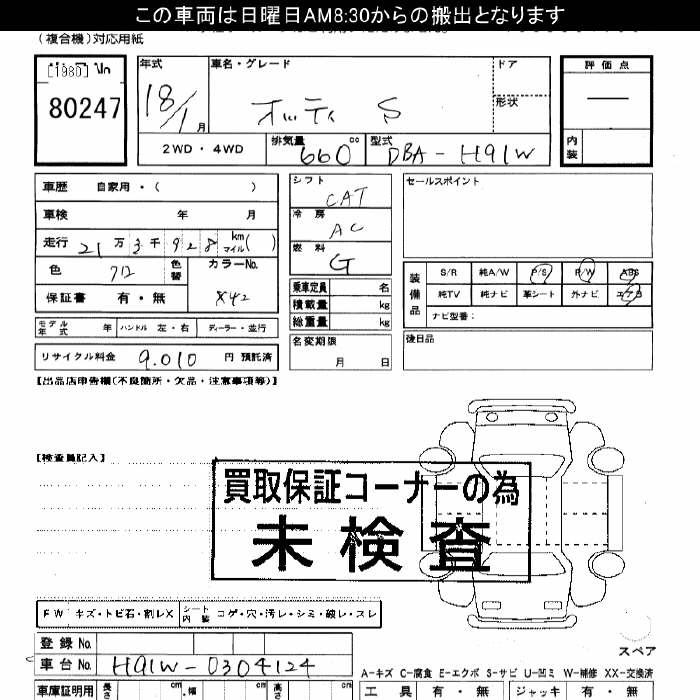 この車両は日曜日AM8:30からの搬出となります
(複合機)対応用紙
80247
年式 車名・グレード ドア 評価点
18/1月 オッティ S 形状
2WD・4WD 排気量 660 cc 型式 DBA-H91W 内装
車歴 自家用・( ) シフト CAT セールスポイント
車検 年 月 冷房 AC
走行 21万3千928 km マイル( ) 燃料 G
色 色替 カラーNo. X42
保証書 有・無
乗車定員 名
積載量 kg
総重量 kg
装備品 S/R 純A/W P/S P/W ABS
純TV 純ナビ 革シート 外ナビ エアB
ナビ型番:
モデル年式 年 ハンドル 左・右 ディーラー・並行 名変期限 月 日 後日品
リサイクル料金 9,010 円 預託済
【出品店申告欄(不良箇所・欠品・注意事項等)】
【検査員記入】
買取保証コーナーの為
未検査
FW キズ・トビ石・割レX シート内装 コゲ・穴・汚レ・シミ・破レ・スレ
登録No.
車台No. H91W-0304124
スペア
A-キズ C-腐食 E-エクボ S-サビ U-凹ミ W-補修 XX-交換済
車庫証明用 長さ cm 幅 cm 高さ cm 工具 有・無 ジャッキ 有・無